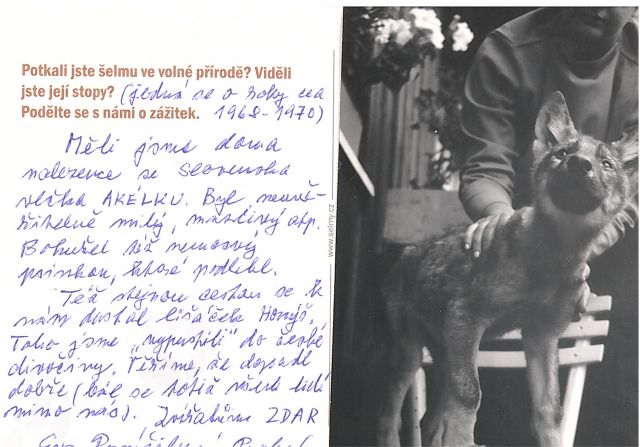 Potkali jste šelmu ve volné přírodě? Viděli
jste její stopy? (jedná se o roky cca
Podělte se s námi o zážitek. 1968-1970)
Měli jsme doma
nalezence se Slovenska
vlčka AKÉLKU. Byl neuvě-
řitelně milý, mazlivý atp.
Bohužel též nemocný
psinkou, které podlehl.
Též stejnou cestou se k
nám dostal lišáček
Toho jsme "vypustili" do české
divočiny. Věříme, že dopadl
dobře (bál se totiž všech lidí
mimo nás). Zvířatům ZDAR
www.selmy.cz